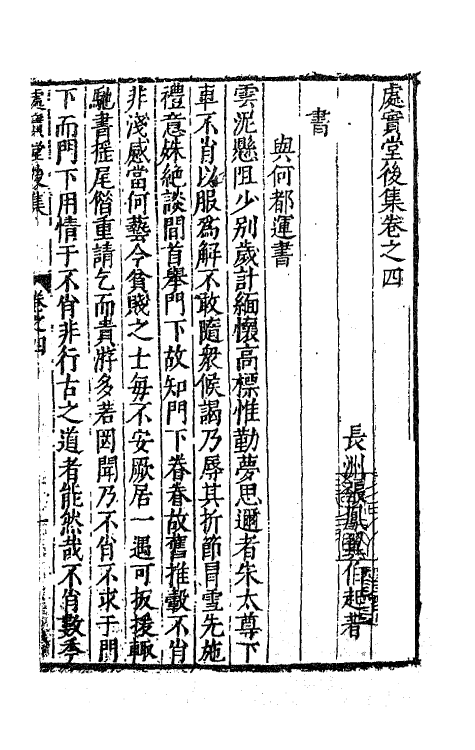 處實堂後集卷之四
長州張鳳翼伯起著
書
與何都運書
雲泥懸阻少别歲計緬懷高標惟勤夢思邇者朱太尊下
車不肖以服爲解不敢隨衆候謁乃辱其折節冐雪先施
禮意姝絶談間首舉門下故知門下眷眷故舊推轂不肖
非淺感當何藝今貧賤之士毎不安厥居一遇可扳援輙
馳書揺尾偺重請乞而貴游多若罔聞乃不肖不求于門
下而門下用情于不肖非行古之道者能然哉不肖數季
處實堂後集
卷之四